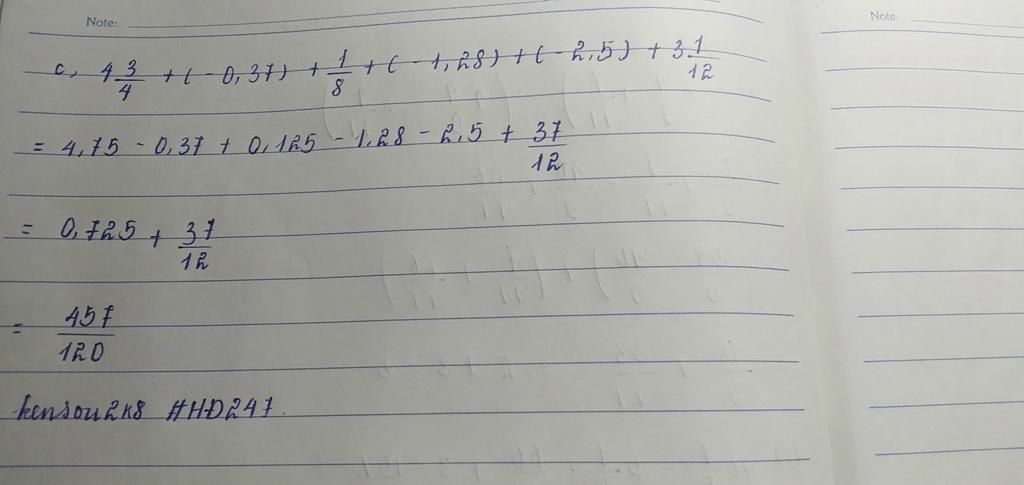 Note:
Note:
c, 4 3/4 + (-0,37) + 1/8 + (-1,28) + (-2,5) + 3 1/12
= 4,75 - 0,37 + 0,125 - 1,28 - 2,5 + 37/12
= 0,725 + 37/12
= 457/120
kensou2k8 #HD247.